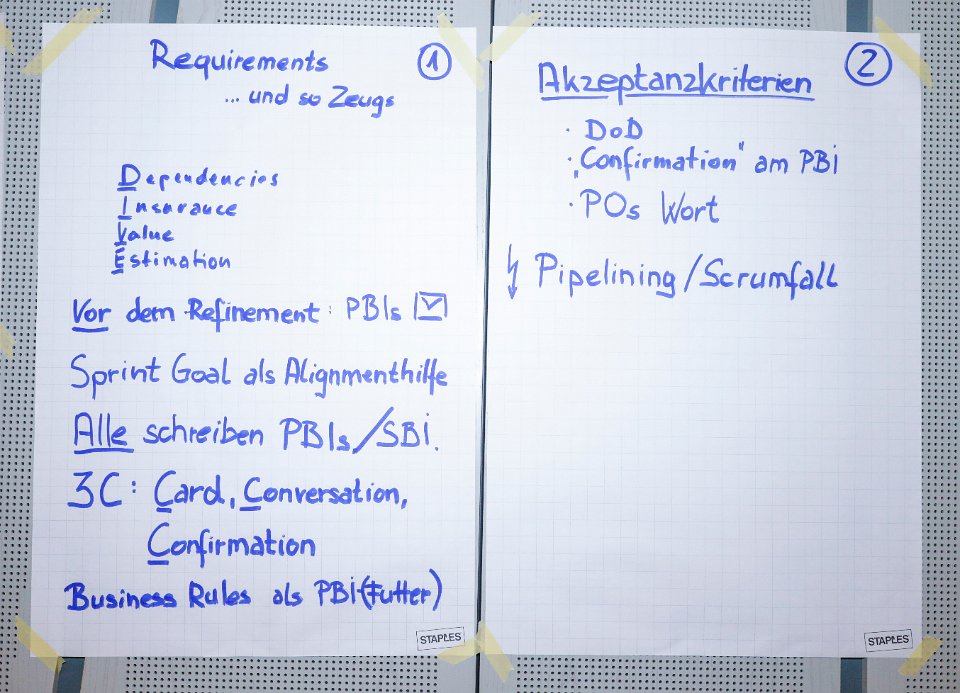 Requirements
1
... und so Zeugs
Dependencies
Insurance
Value
Estimation
Vor dem Refinement: PBIs
Sprint Goal als Alignmenthilfe
Alle schreiben PBIs/SBI.
3C: Card, Conversation,
Confirmation
Business Rules als PBI(Futter)
STAPLES
2
Akzeptanzkriterien
· DoD
· „Confirmation" am PBI
· POs Wort
Pipelining/Scrumfall
STAPLES